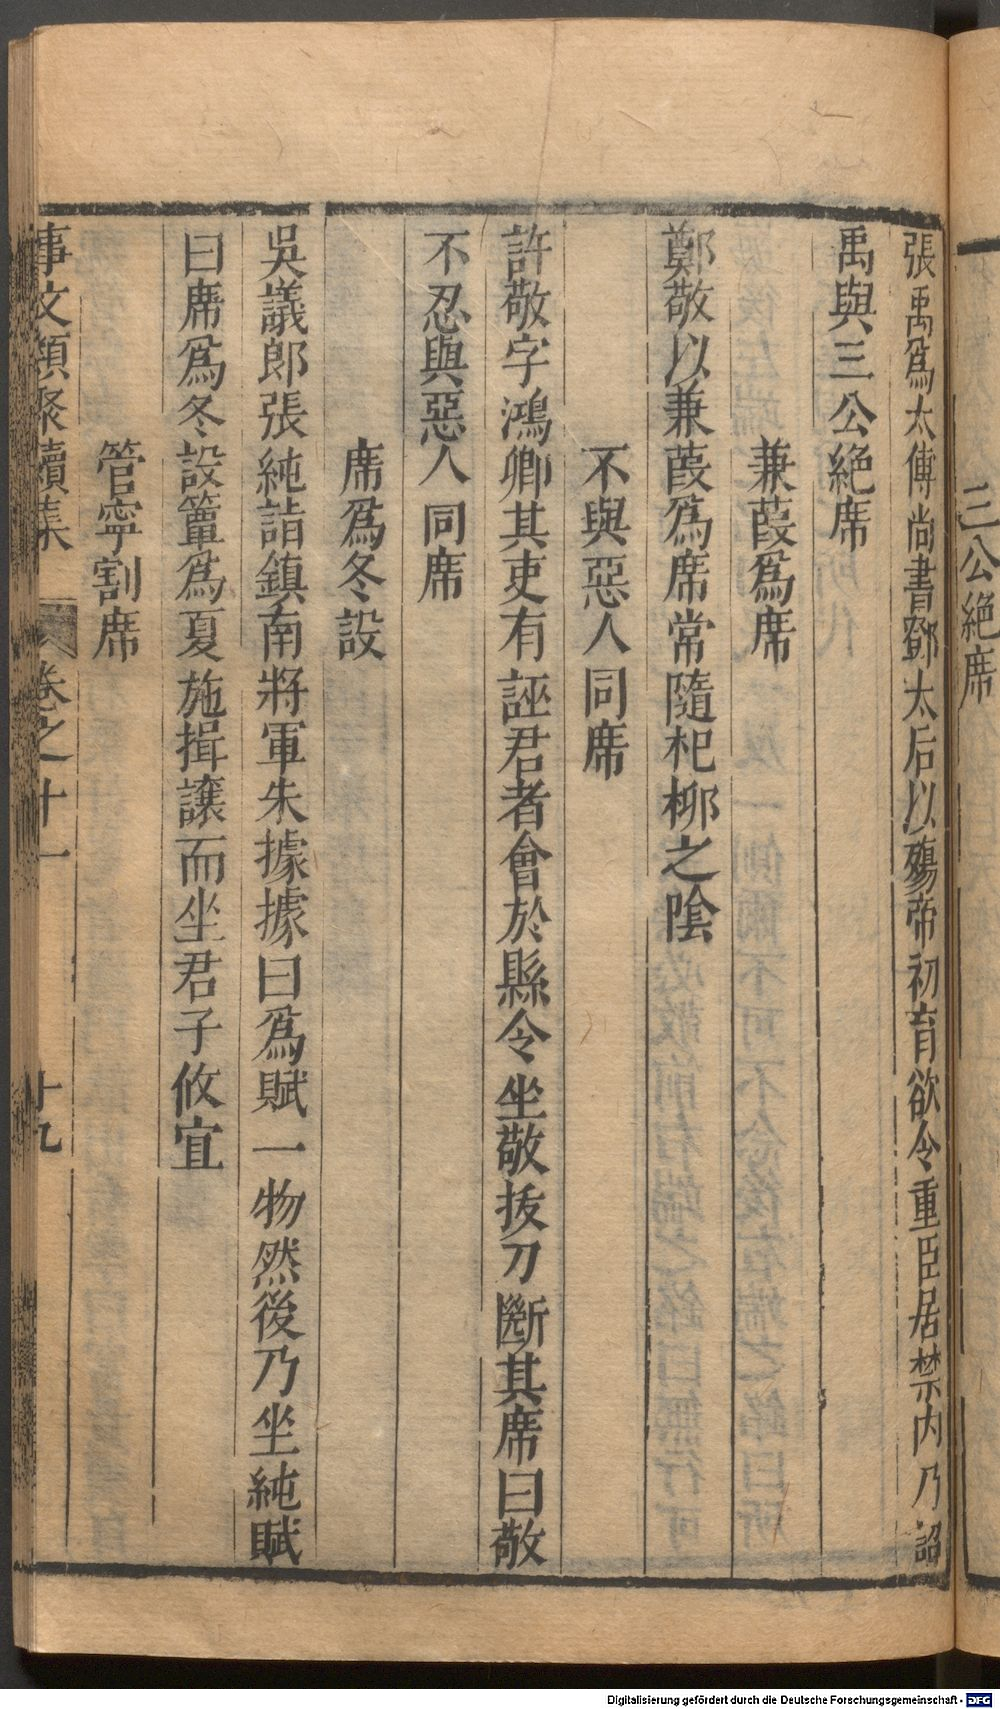 三公絶席
張禹爲太傅尚書鄧太后以殤帝初育欲令重臣居禁内乃詔
禹與三公絶席
蒹葭爲席
鄭敬以蒹葭爲席常隨杞柳之陰
不與惡人同席
許敬字鴻卿其吏有誣君者會於縣令坐敬拔刀斷其席曰敬
不忍與惡人同席
席爲冬設
吳議郎張純詣鎮南將軍朱據據曰爲賦一物然後乃坐純賦
曰席爲冬設簟爲夏施揖讓而坐君子攸宜
管寧割席
事文類聚續集 卷之十一 十九
Digitalisierung gefördert durch die Deutsche Forschungsgemeinschaft - DFG